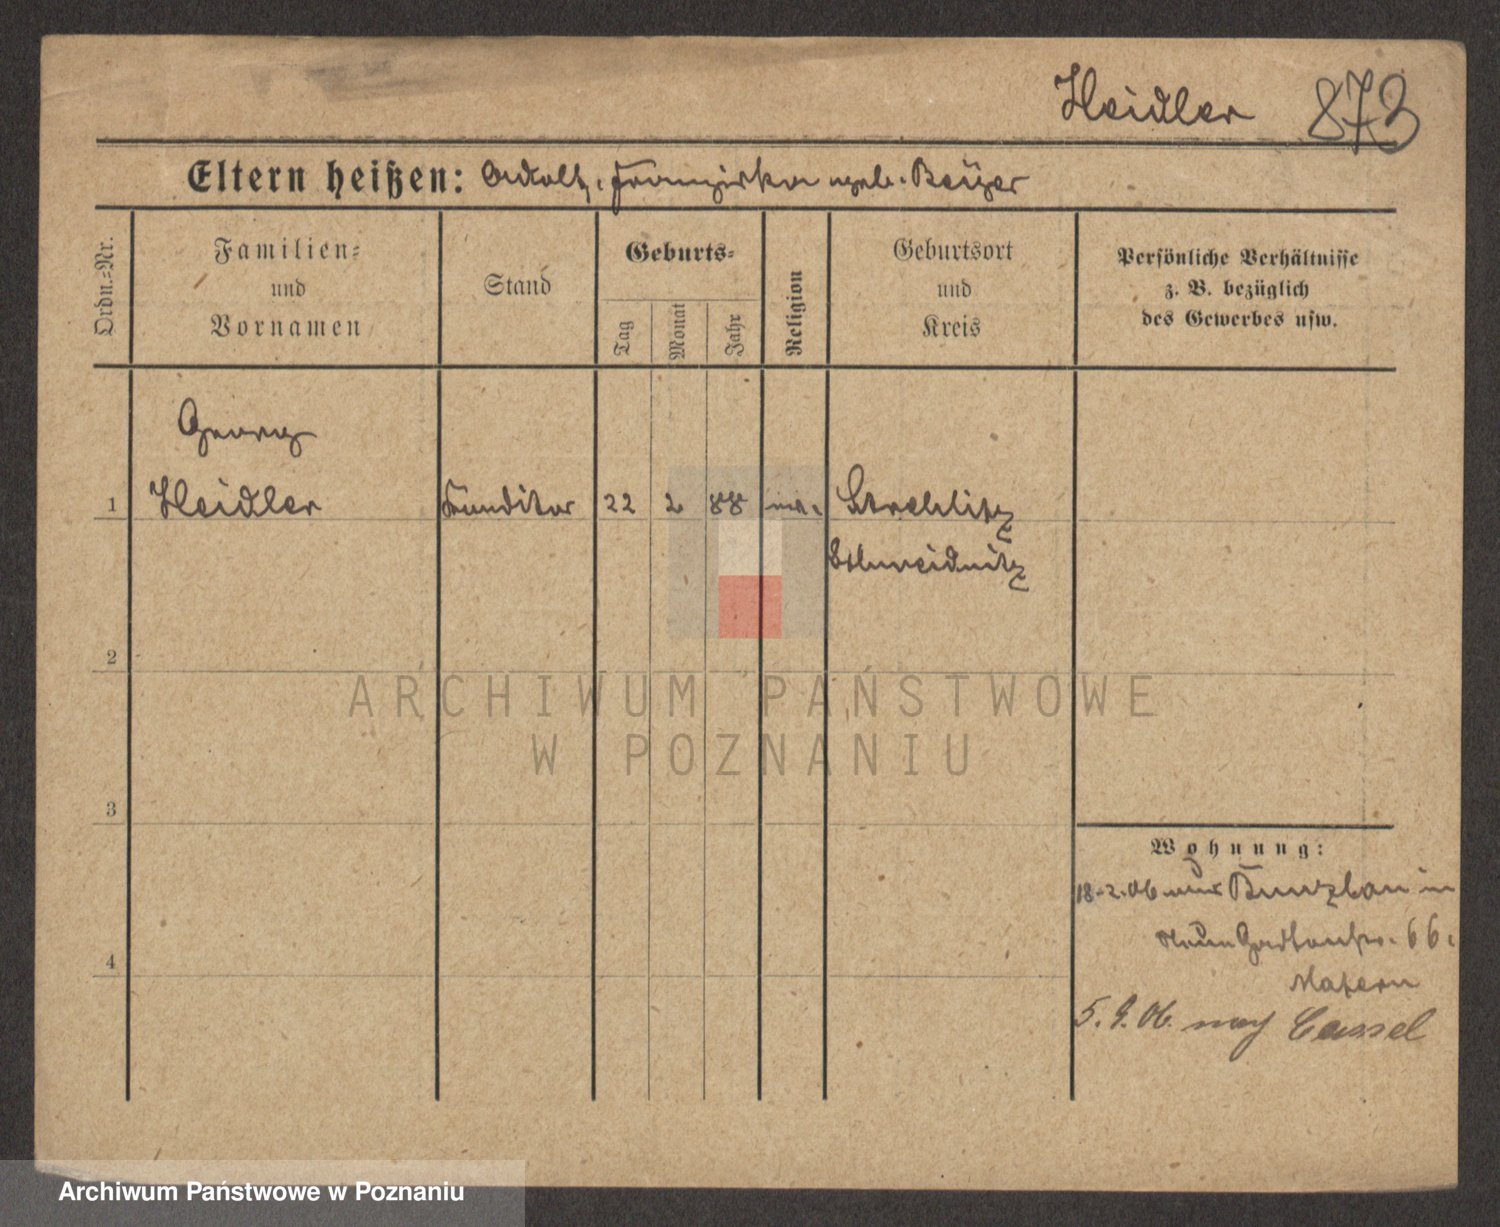 Heidler 873
Eltern heißen: Adolf, Franziska geb.
Ordn.=Nr.
Familien=
und
Vornamen
Stand
Geburts=
Tag
Monat
Jahr
Religion
Geburtsort
und
Kreis
Persönliche Verhältnisse
z. B. bezüglich
des Gewerbes usw.
Georg
1 Heidler Konditor 22 2 88 Strehlitz
Schweidnitz
2
3
4
Wohnung:
18.2.06 aus Bunzlau in
66.
5.9.06 nach Cassel
ARCHIWUM PAŃSTWOWE
W POZNANIU
Archiwum Państwowe w Poznaniu